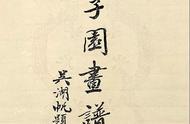 子園畫譜
吳湖帆題